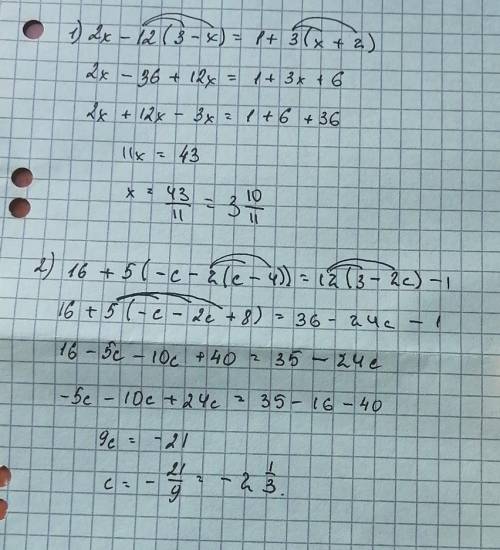 1) 2x - 12(3 - x) = 1 + 3(x + 2)
2x - 36 + 12x = 1 + 3x + 6
2x + 12x - 3x = 1 + 6 + 36
11x = 43
x = 43/11 = 3 10/11
2) 16 + 5(-c - 2(c - 4)) = 12(3 - 2c) - 1
16 + 5(-c - 2c + 8) = 36 - 24c - 1
16 - 5c - 10c + 40 = 35 - 24c
-5c - 10c + 24c = 35 - 16 - 40
9c = -21
c = - 21/9 = -2 1/3.